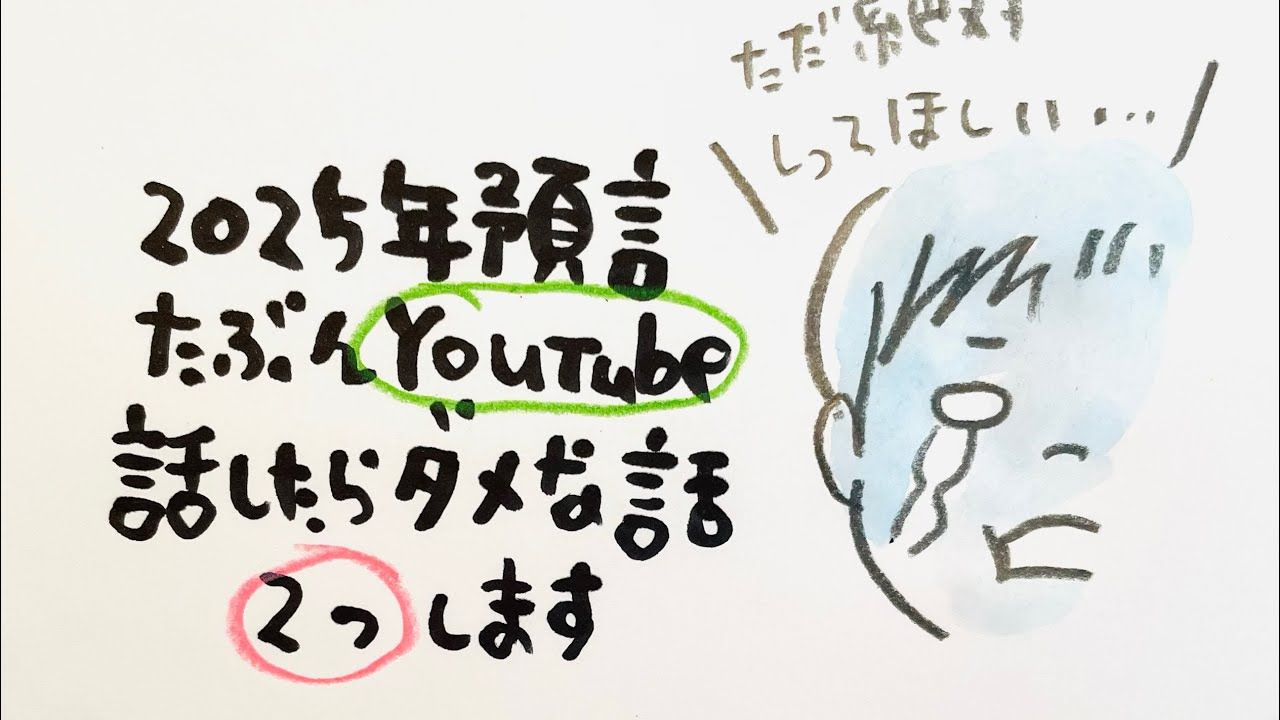 ただ絶対
しってほしい…
2025年預言
たぶんYouTube
話したらダメな話
2つします